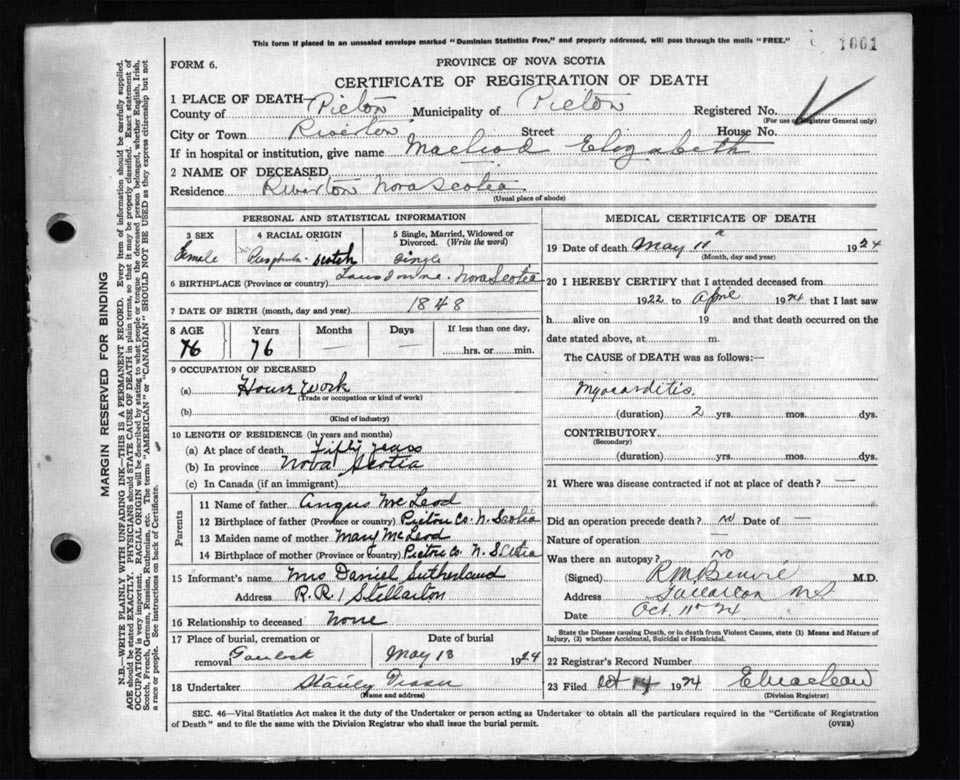 This form if placed in an unsealed envelope marked "Dominion Statistics Free," and properly addressed, will pass through the mails "FREE."
1661
FORM 6.
PROVINCE OF NOVA SCOTIA
CERTIFICATE OF REGISTRATION OF DEATH
1 PLACE OF DEATH—
County of Pictou Municipality of Pictou Registered No.
(For use of Registrar General only)
City or Town Riverton Street House No.
If in hospital or institution, give name Macleod Elizabeth
2 NAME OF DECEASED
Residence Riverton Nova Scotia
(Usual place of abode)
PERSONAL AND STATISTICAL INFORMATION
3 SEX 4 RACIAL ORIGIN 5 Single, Married, Widowed or Divorced. (Write the word)
Female Scotch Single
6 BIRTHPLACE (Province or country) Nova Scotia
7 DATE OF BIRTH (month, day and year) 1848
8 AGE Years Months Days If less than one day,
76 76 — — hrs. or min.
9 OCCUPATION OF DECEASED
(a) House work
(Trade or occupation or kind of work)
(b)
(Kind of industry)
10 LENGTH OF RESIDENCE (in years and months)
(a) At place of death Fifty years
(b) In province Nova Scotia
(c) In Canada (if an immigrant)
Parents
11 Name of father Angus McLeod
12 Birthplace of father (Province or country) Pictou Co. N. Scotia
13 Maiden name of mother Mary McLeod
14 Birthplace of mother (Province or country) Pictou Co N. Scotia
15 Informant's name Mrs Daniel Sutherland
Address R.R. 1 Stellarton
16 Relationship to deceased None
17 Place of burial, cremation or removal Date of burial
May 13 1924
18 Undertaker Stanley Fraser
(Name and address)
MEDICAL CERTIFICATE OF DEATH
19 Date of death May 11 1924
(Month, day and year)
20 I HEREBY CERTIFY that I attended deceased from
1922 to April 1924 that I last saw
h alive on 19 and that death occurred on the
date stated above, at m.
The CAUSE of DEATH was as follows:—
Myocarditis.
(duration) 2 yrs. mos. dys.
CONTRIBUTORY
(Secondary)
(duration) yrs. mos. dys.
21 Where was disease contracted if not at place of death? —
Did an operation precede death? no Date of —
Nature of operation —
Was there an autopsy? no
(Signed) M.D.
Address
Date Oct. 11th 24
State the Disease causing Death, or in death from Violent Causes, state (1) Means and Nature of Injury, (2) whether Accidental, Suicidal or Homicidal.
22 Registrar's Record Number
23 Filed Oct 14 1924 E Maclean
(Division Registrar)
SEC. 46—Vital Statistics Act makes it the duty of the Undertaker or person acting as Undertaker to obtain all the particulars required in the "Certificate of Registration of Death" and to file the same with the Division Registrar who shall issue the burial permit. (OVER)
MARGIN RESERVED FOR BINDING
N.B.—WRITE PLAINLY WITH UNFADING INK—THIS IS A PERMANENT RECORD. Every item of information should be carefully supplied.
AGE should be stated EXACTLY. PHYSICIANS should STATE CAUSE OF DEATH in plain terms, so that it may be properly classified. Exact statement of
OCCUPATION is very important. RACIAL ORIGIN will be described by stating to what people or tongue the deceased person belonged, whether English, Irish,
Scotch, French, German, Russian, Ruthenian, etc. The terms "AMERICAN" or "CANADIAN" SHOULD NOT BE USED as they express citizenship but not
a race or people. See instructions on back of Certificate.